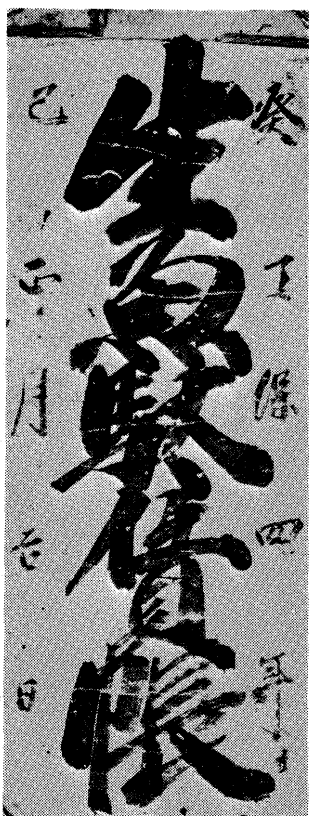 癸天保四年
生魚駄賃帳
巳正月吉日